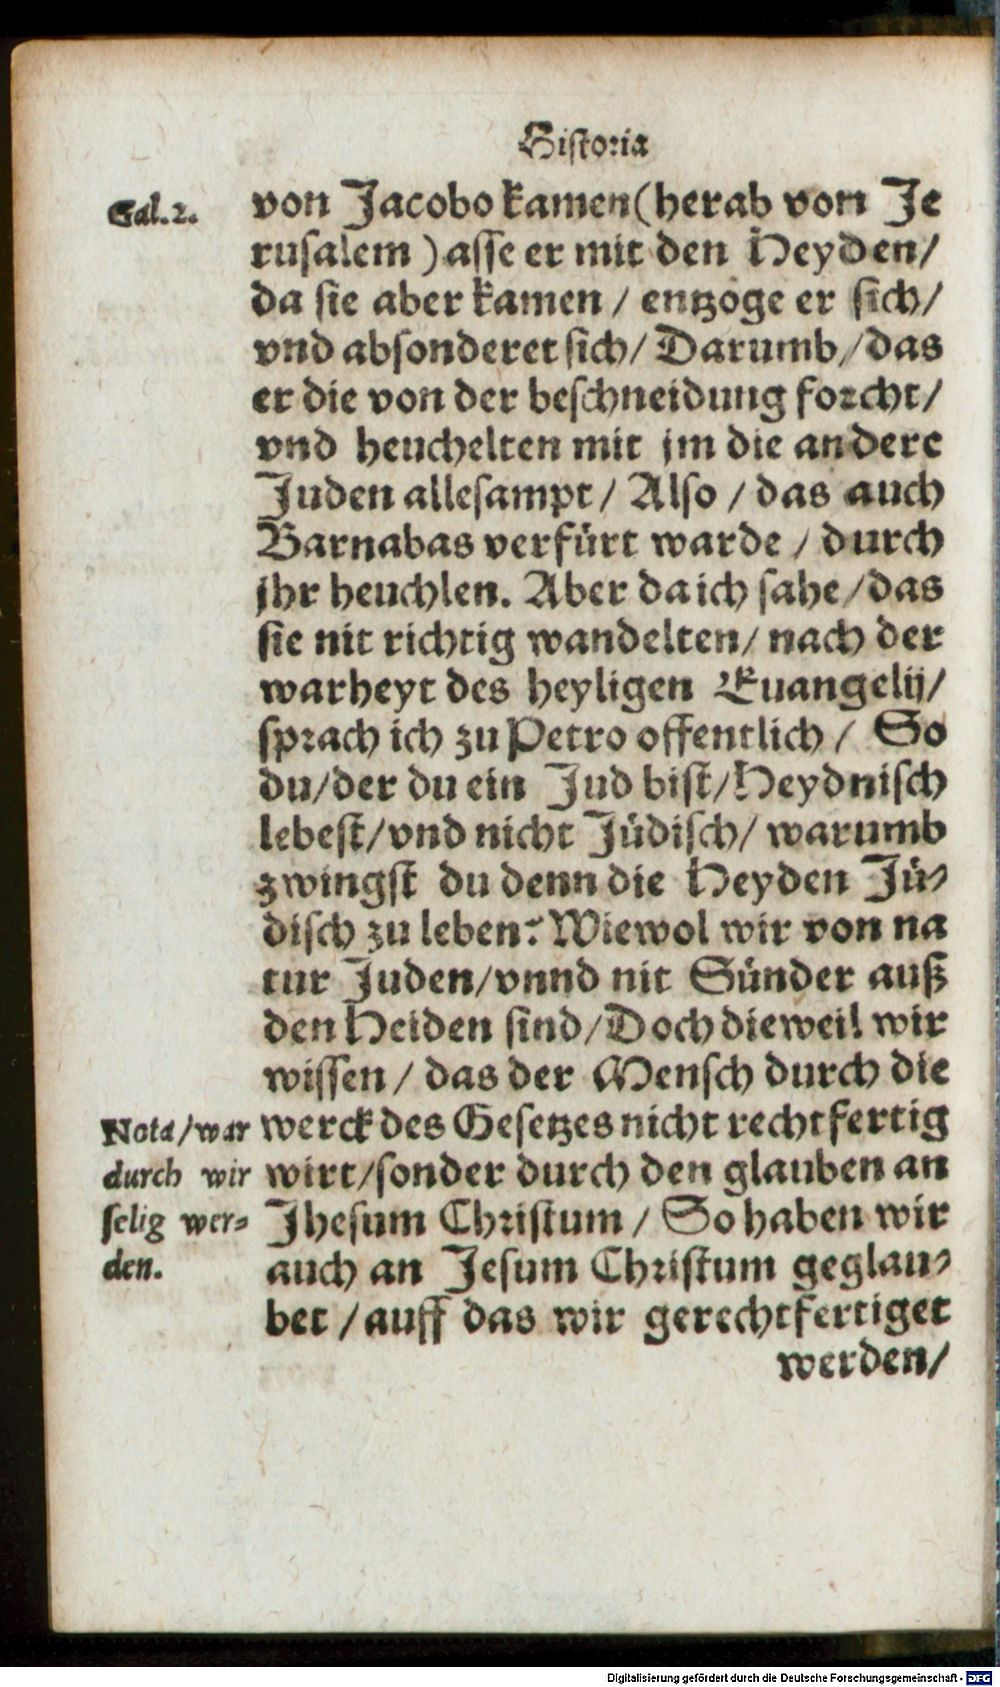 Historia
Gal. 2.
von Jacobo kamen (herab von Je
rusalem) asse er mit den Heyden/
da sie aber kamen / entzoge er sich/
vnd absonderet sich/ Darumb/das
er die von der beschneidung forcht/
vnd heuchelten mit jm die andere
Juden allesampt/ Also / das auch
Barnabas verfürt warde / durch
jhr heuchlen. Aber da ich sahe/das
sie nit richtig wandelten/ nach der
warheyt des heyligen Euangelij/
sprach ich zu Petro offentlich / So
du/der du ein Jud bist/Heydnisch
lebest/vnd nicht Jüdisch/ warumb
zwingst du denn die Heyden Jü-
disch zu leben? Wiewol wir von na
tur Juden/vnnd nit Sünder auß
den Heiden sind/Doch dieweil wir
wissen / das der Mensch durch die
werck des Gesetzes nicht rechtfertig
wirt/sonder durch den glauben an
Jhesum Christum / So haben wir
auch an Jesum Christum geglau-
bet /auff das wir gerechtfertiget
werden/
Nota/war
durch wir
selig wer-
den.
Digitalisierung gefördert durch die Deutsche Forschungsgemeinschaft - DFG